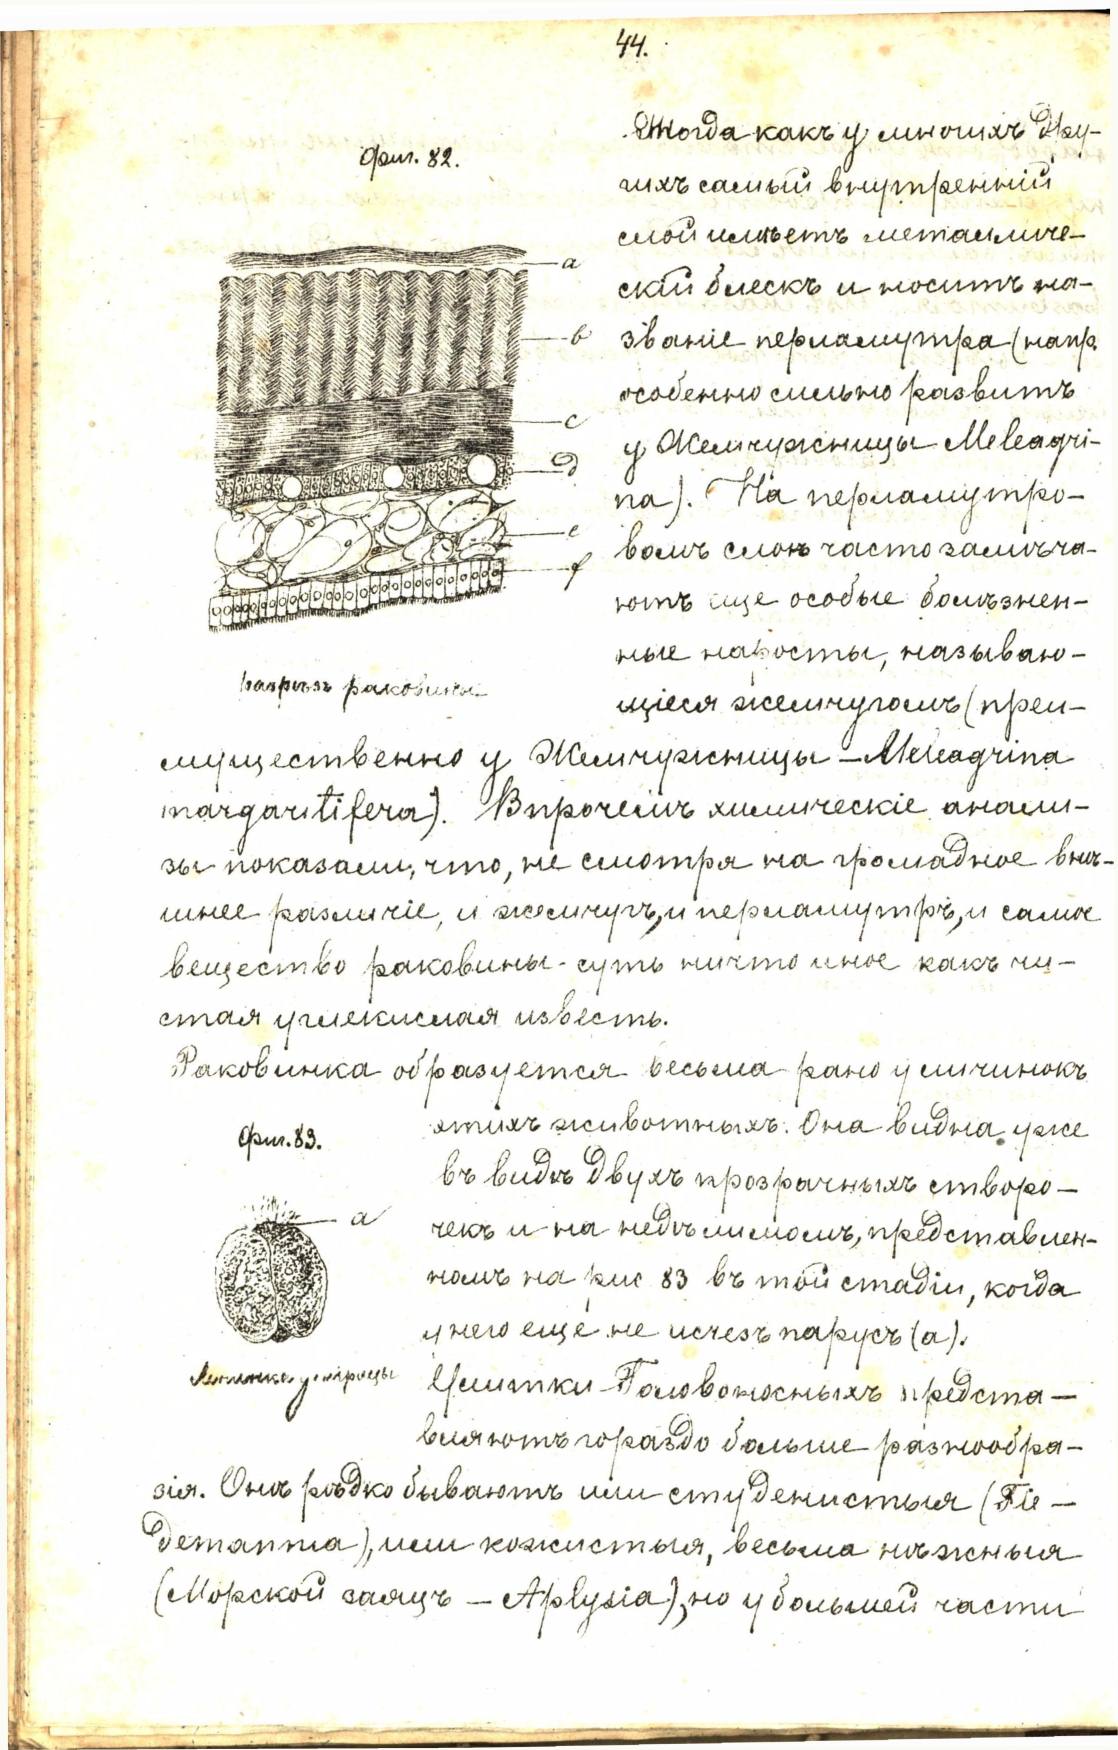 44.
Фиг. 82.
a
b
c
d
e
f
разрѣзъ раковины
Тогда какъ у многихъ дру-
гихъ самый внутренній
слой имѣетъ металличе-
скій блескъ и носитъ на-
званіе перламутра (напр.
особенно сильно развитъ
у Жемчужницы Meleagri-
na). На перламутро-
вомъ слоѣ часто замѣча-
ютъ еще особые болѣзнен-
ные наросты, называю-
щіеся жемчугомъ (преи-
мущественно у Жемчужницы – Meleagrina
margaritifera). Впрочемъ химическіе анали-
зы показали, что, не смотря на громадное внѣ-
шнее различіе, и жемчугъ, и перламутръ, и самое
вещество раковины - суть ничто иное какъ чи-
стая углекислая известь.
Раковинка образуется весьма рано у личинокъ
Фиг. 83.
a
Личинка устрицы
этихъ животныхъ. Она видна уже
въ видѣ двухъ прозрачныхъ створо-
чекъ и на недѣлимомъ, представлен-
номъ на рис 83 въ той стадіи, когда
у него еще не исчезъ парусъ (а).
Улитки Головоносныхъ предста-
вляютъ гораздо больше разнообра-
зія. Онѣ рѣдко бываютъ или студенистыя (Tie-
demannia), или кожистыя, весьма нѣжныя
(Морской заяцъ – Aplysia), но у большей части